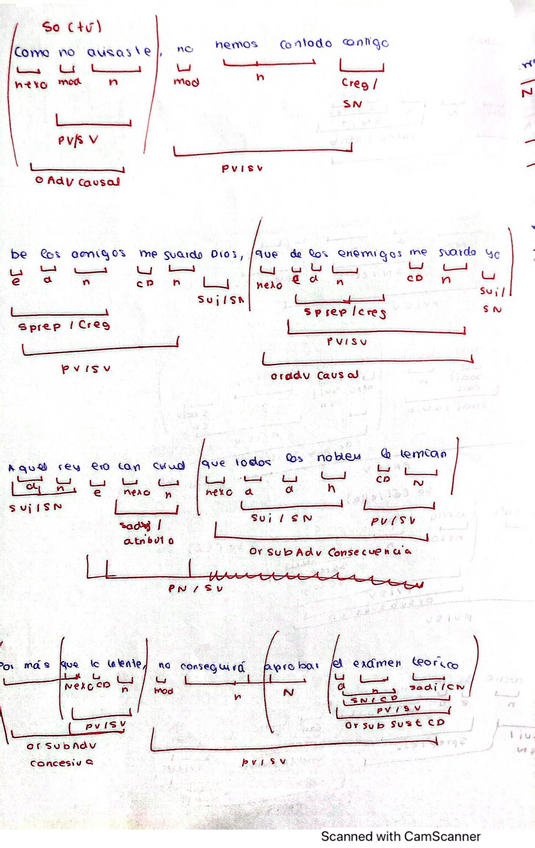 So (tú)
Como no avisaste, no hemos contado contigo
nexo mod n mod n Creg/
SN
PV/SV
PV/SV
O Adv Causal
De los amigos me guarde Dios, que de los enemigos me guardo yo
e d n CD n nexo e d n CD n
Suj/SN Suj/
SN
Sprep/Creg Sprep/Creg
PV/SV
PV/SV
Or adv Causal
Aquel rey era tan cruel que todos los nobles le temían
d n e nexo n nexo d d n CD N
Suj/SN
Sadj/
atributo
Suj/SN PV/SV
Or sub Adv Consecuencia
PN/SV
Por más que lo intente, no conseguirá aprobar el exámen teorico
Nexo CD n mod n N d n Sadj/CN
SN/CD
PV/SV PV/SV
Or sub Sust CD
Or sub Adv
Concesiva
PV/SV
Scanned with CamScanner